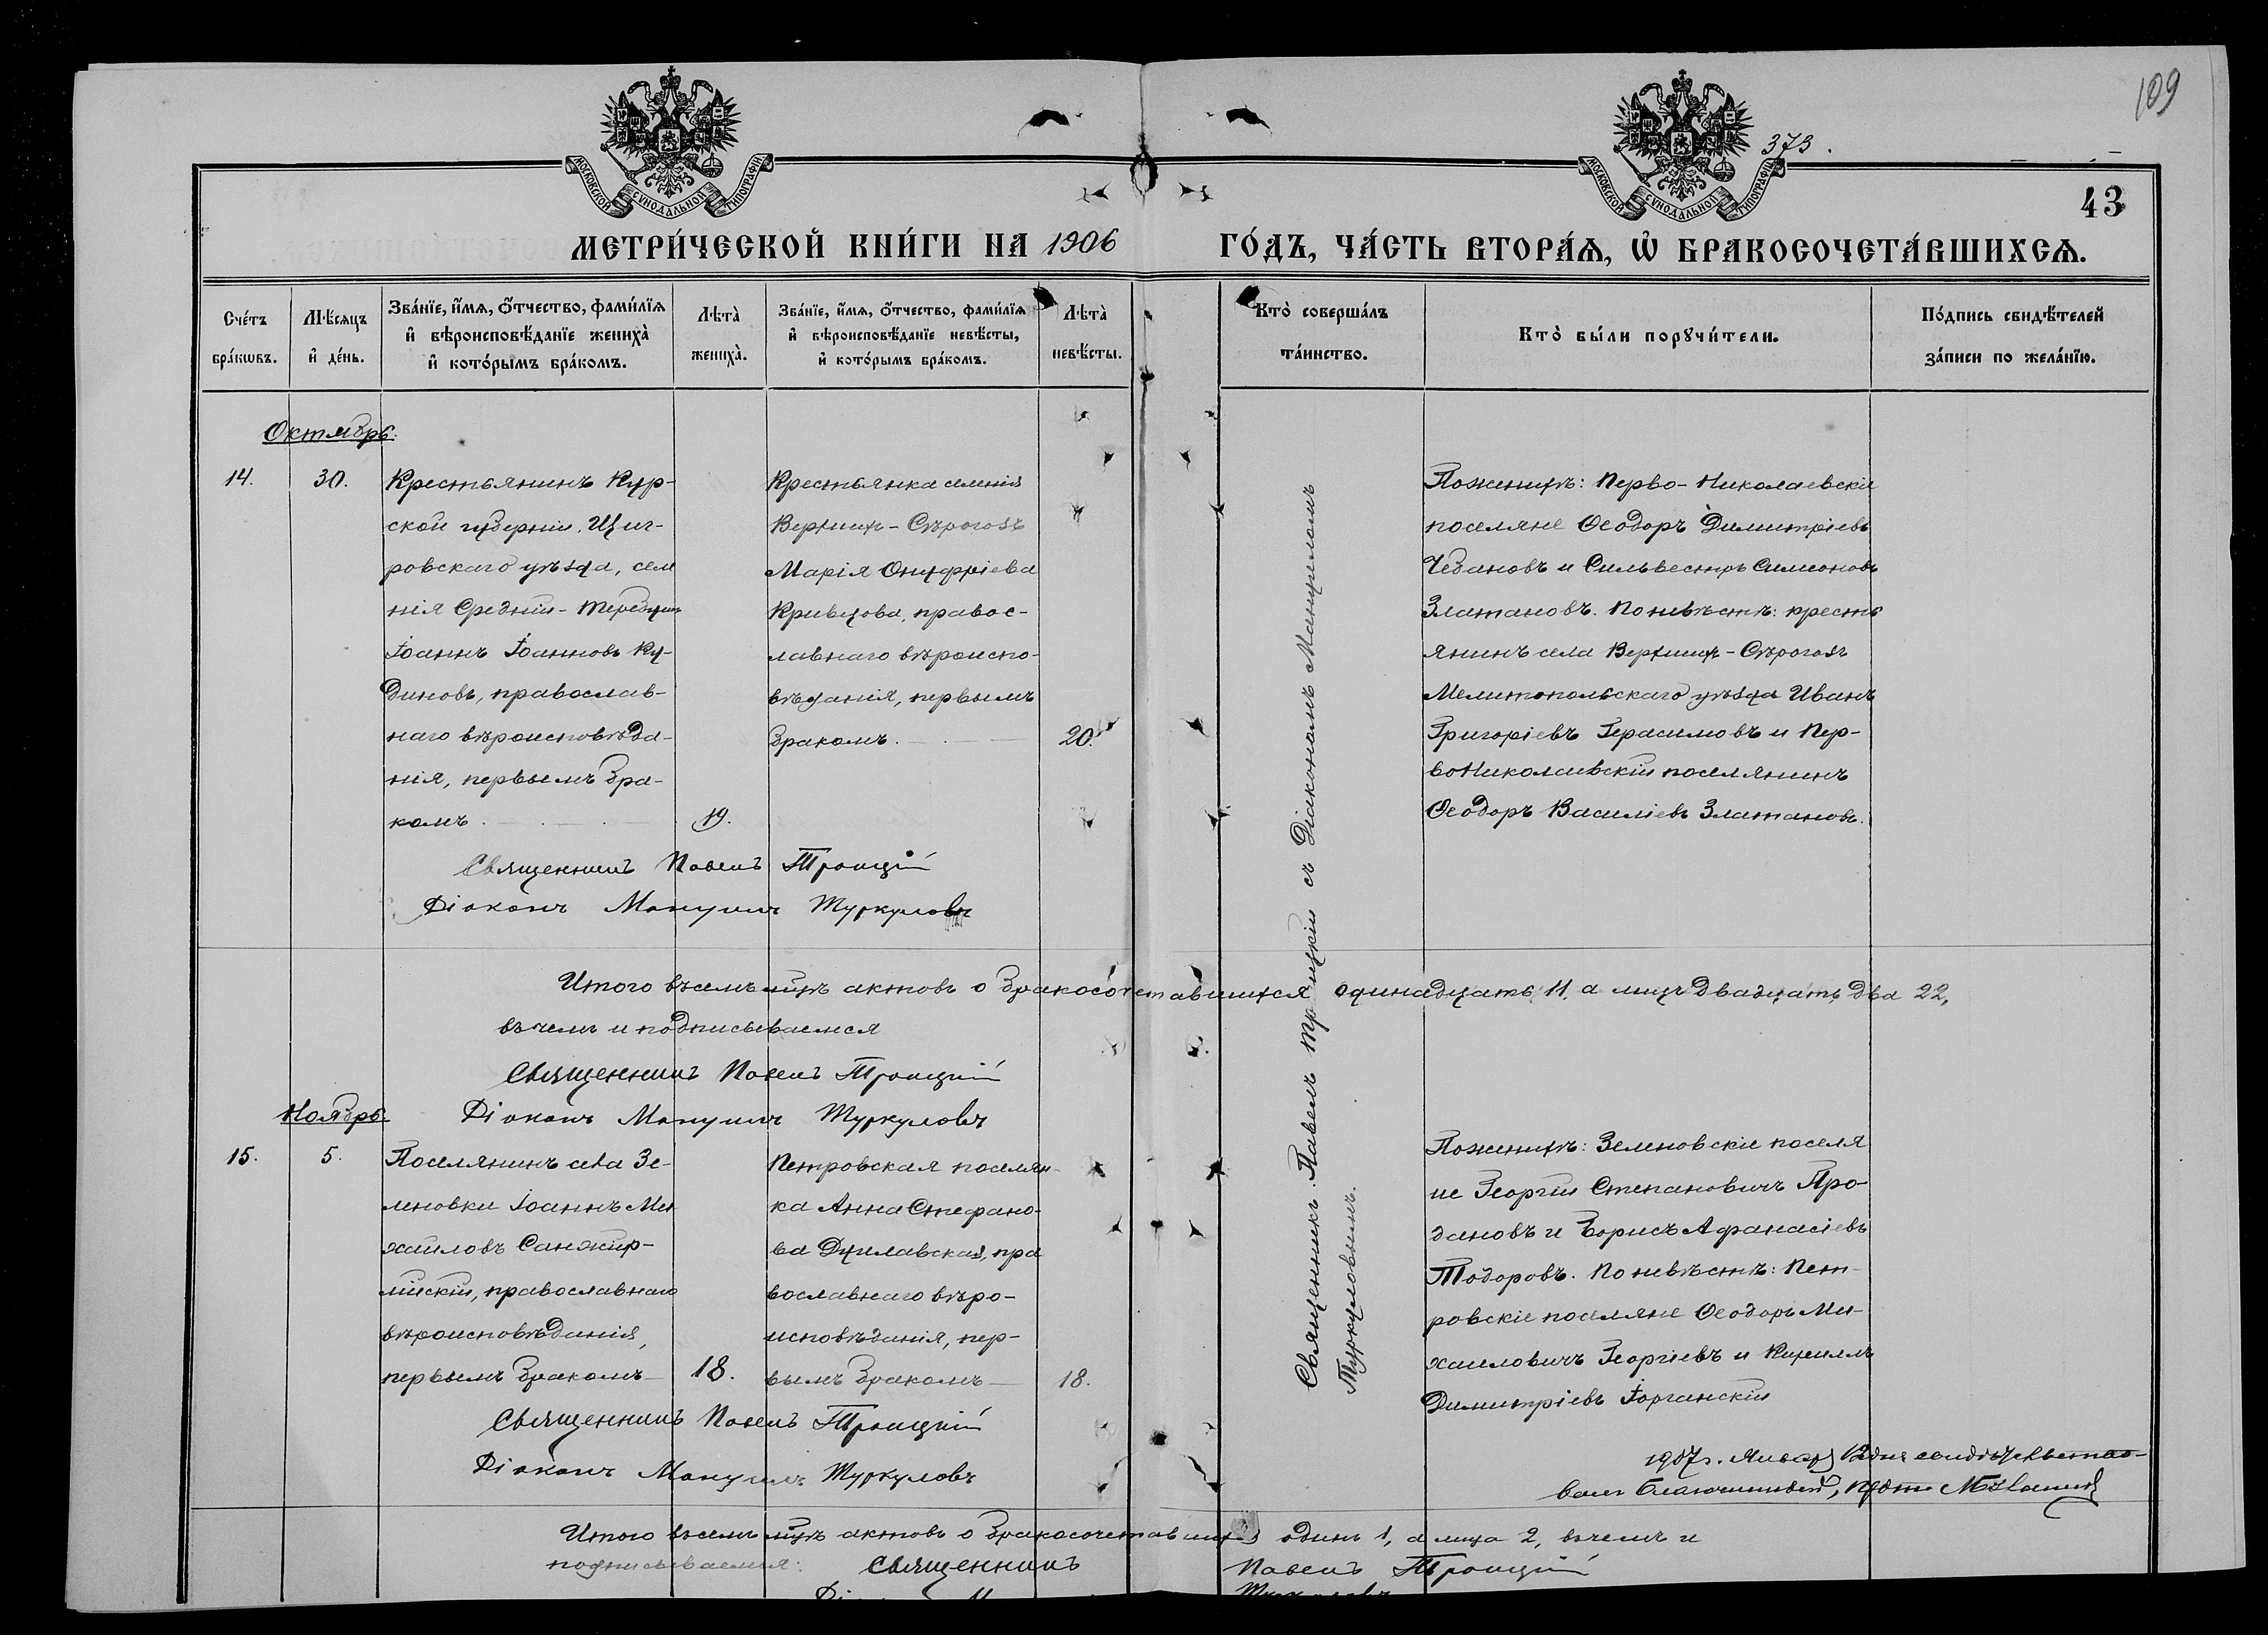 109
373.
43
МОСКОВСКОЙ СѴНОДАЛЬНОЙ ТИПОГРАФІИ
МОСКОВСКОЙ СѴНОДАЛЬНОЙ ТИПОГРАФІИ
МЕТРИ́ЧЕСКОЙ КНИ́ГИ НА 1906 ГО́ДЪ, ЧА́СТЬ ВТОРА́Ѧ, Ѽ БРАКОСОЧЕТА́ВШИХСѦ.
Сче́тъ
бра́кωвъ.
Мѣ́сѧцъ
и҆ де́нь.
Зва́нїе, и҆́мѧ, ѻ҆́тчество, фами́лїѧ
и҆ вѣроисповѣ́данїе жениха̀
и҆ кото́рымъ бра́комъ.
Лѣта̀
жениха̀.
Зва́нїе, и҆́мѧ, ѻ҆́тчество, фами́лїѧ
и҆ вѣроисповѣ́данїе невѣ́сты,
и҆ кото́рымъ бра́комъ.
Лѣта̀
невѣ́сты.
Кто̀ соверша́лъ
та́инство.
Кто̀ бы́ли порꙋчи́тели.
По́дпись свидѣ́телей
за́писи по жела́нїю.
Октябрь.
14.
30.
Крестьянинъ Кур-
ской губерніи, Щиг-
ровскаго уѣзда, селе
нія Средній-Теребужъ
Іоаннъ Іоанновъ Ку-
диновъ, православ-
наго вѣроисповѣда-
нія, первымъ бра-
комъ.
19.
Крестьянка селенія
Верхнихъ-Сѣрогозъ
Марія Онуфріева
Кривцова, правос-
лавнаго вѣроиспо-
вѣданія, первымъ
бракомъ.
20.
Священникъ Павелъ Троицкій съ Діакономъ Мануиломъ
Туркуловымъ.
По женихѣ: Перво-Николаевскіе
поселяне Ѳеодоръ Димитріевъ
Чебановъ и Сильвестръ Симеоновъ
Златановъ. По невѣстѣ: кресть
янинъ села Верхнихъ-Сѣрогозъ
Мелитопольскаго уѣзда Иванъ
Григоріевъ Герасимовъ и Пер-
воНиколаевскій поселянинъ
Ѳеодоръ Василіевъ Златановъ.
Священникъ Павелъ Троицкій
Діаконъ Мануилъ Туркуловъ
Итого въ семъ мѣсяцѣ актовъ о бракосочетавшихся одинадцать 11, а лицъ двадцать два 22,
въ чемъ и подписываемся
Священникъ Павелъ Троицкій
Діаконъ Мануилъ Туркуловъ
Ноябрь.
15.
5.
Поселянинъ села Зе-
леновки Іоаннъ Ми
хаиловъ
православнаго
вѣроисповѣданія,
первымъ бракомъ
18.
Петровская поселян-
ка Анна Стефано-
ва Дуклавская, пра
вославнаго вѣро-
исповѣданія, пер-
вымъ бракомъ
18.
По женихѣ: Зеленовскіе поселя
не Георгій Степановичъ Про-
дановъ и Борисъ Афанасіевъ
Тодоровъ. По невѣстѣ: Пет-
ровскіе поселяне Ѳеодоръ Ми-
хаиловичъ Георгіевъ и Кириллъ
Димитріевъ Іорганскій
Священникъ Павелъ Троицкій
Діаконъ Мануилъ Туркуловъ
1907 г. Января дня свидѣтельство-
валъ Благочинный,
Итого въ семъ мѣсяцѣ актовъ о бракосочетавшихся одинъ 1, а лица 2, въ чемъ и
подписываемся: Священникъ Павелъ Троицкій